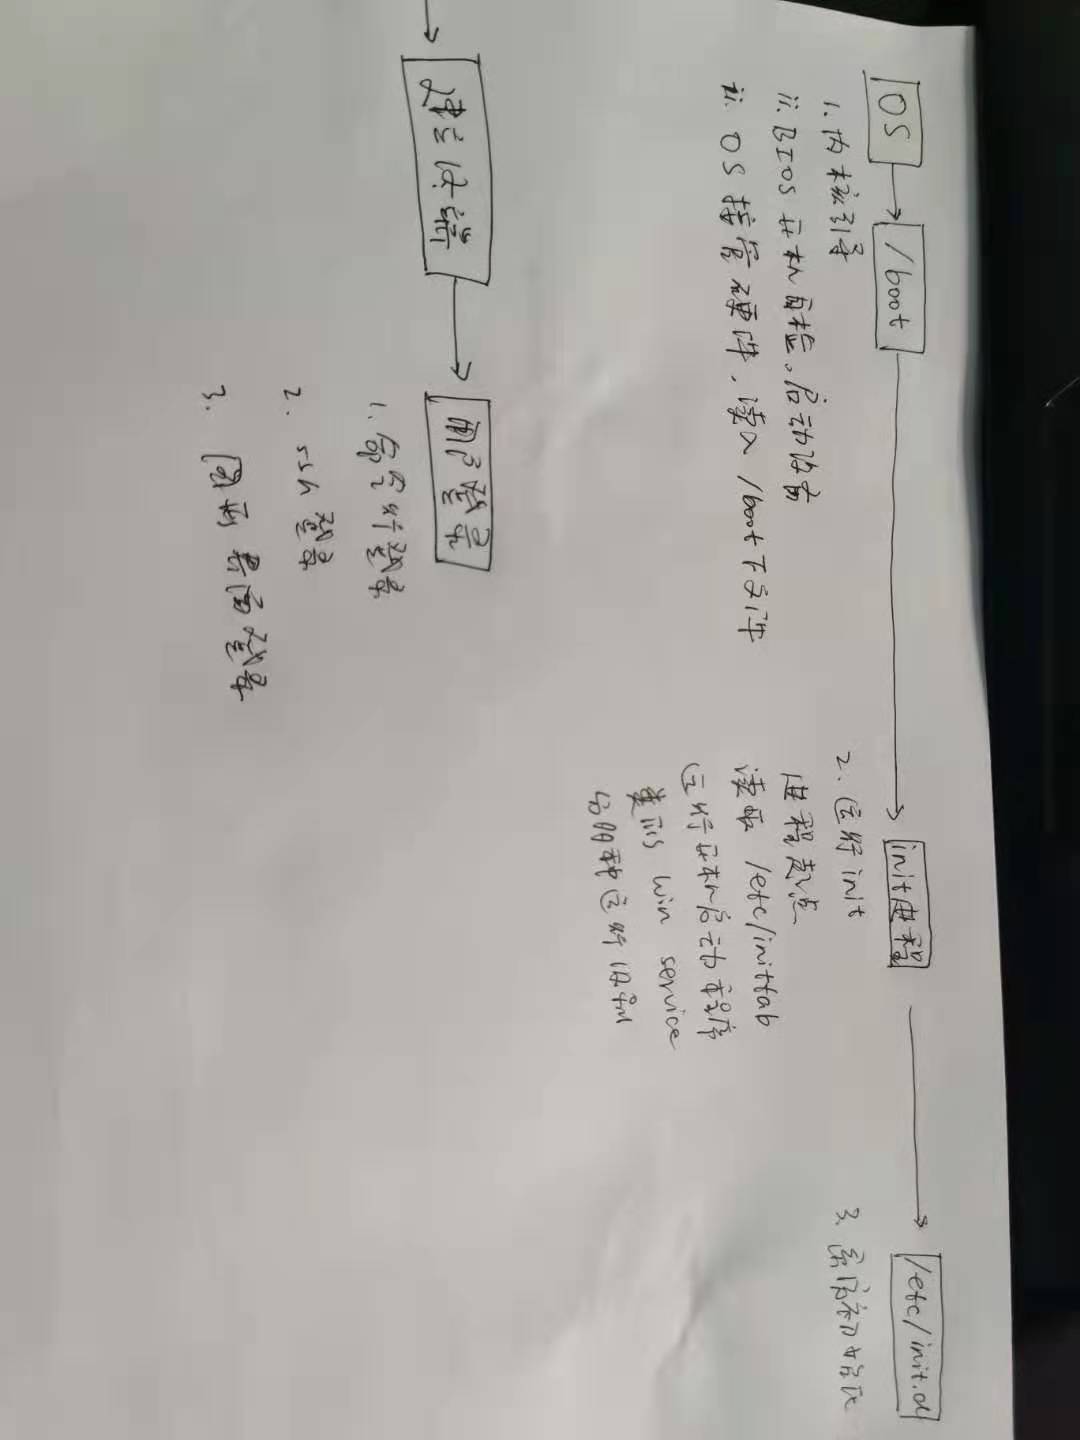 OS
/boot
init进程
/etc/init.d
1. 内核引导
ii. BIOS 开机自检。启动设备
ii. OS 接管硬件，读入 /boot下文件
2. 运行init
进程起点
读取 /etc/inittab
运行开机启动程序
类似 win service
分7种运行级别
3. 系统初始化
建立终端
用户登录
1. 命令行登录
2. ssh 登录
3. 图形界面登录